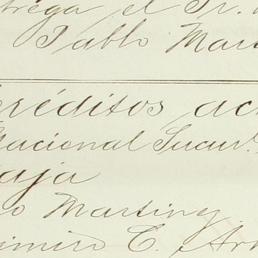 trega el Sr.
Pablo Mar
créditos ac
Nacional Sucur.
aja
o Martiny
imiro C. Ar